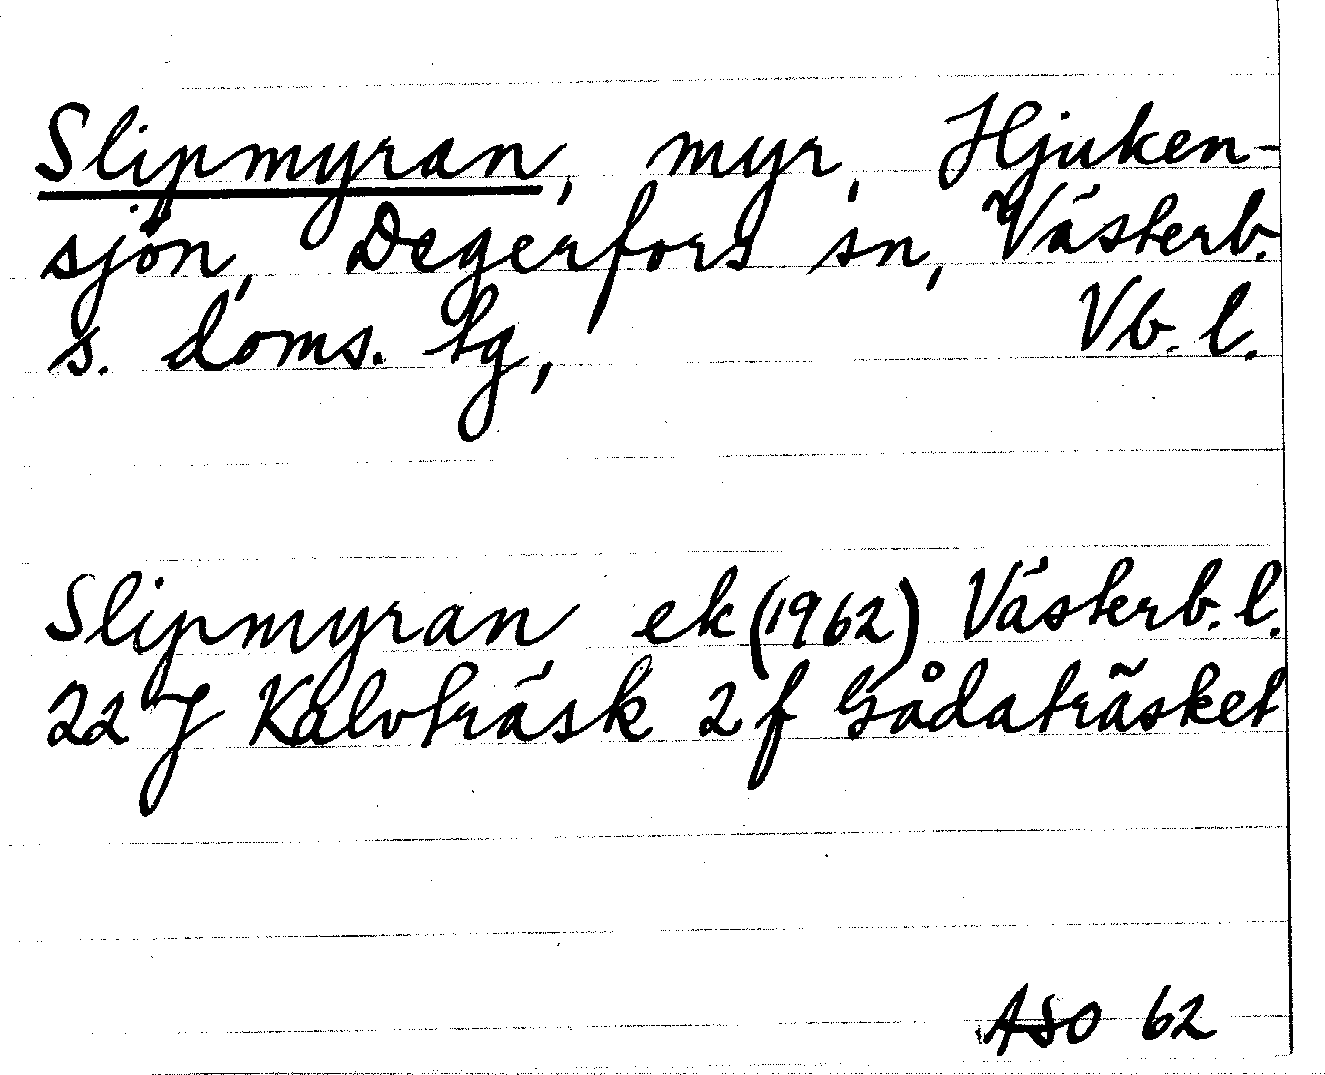 Slipmyran, myr, Hjuken-
sjön, Degerfors sn, Västerb.
s. doms. tg, Vb. l.
Slipmyran ek (1962) Västerb. l.
22 J Kalvträsk 2 f Gådaträsket
ASO 62